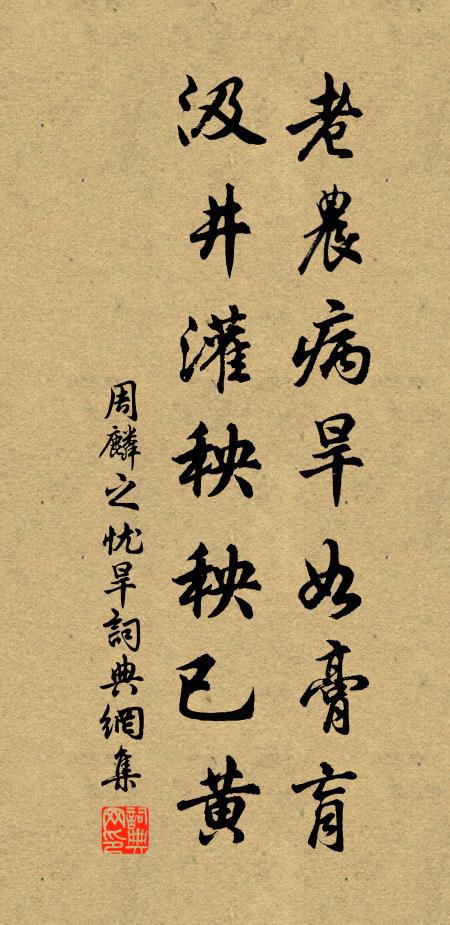 老農病旱如膏肓
汲井灌秧秧已黃
周麟之忧旱詞典網集
詞典網印